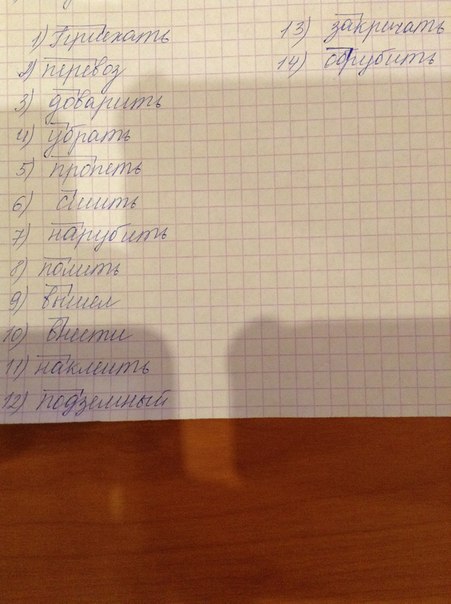 1) Приехать
2) перевоз
3) доварить
4) убрать
5) пропеть
6) сшить
7) нарубить
8) помить
9) вышел
10) внести
11) наклеить
12) подземный
13) закричать
14) обрубить